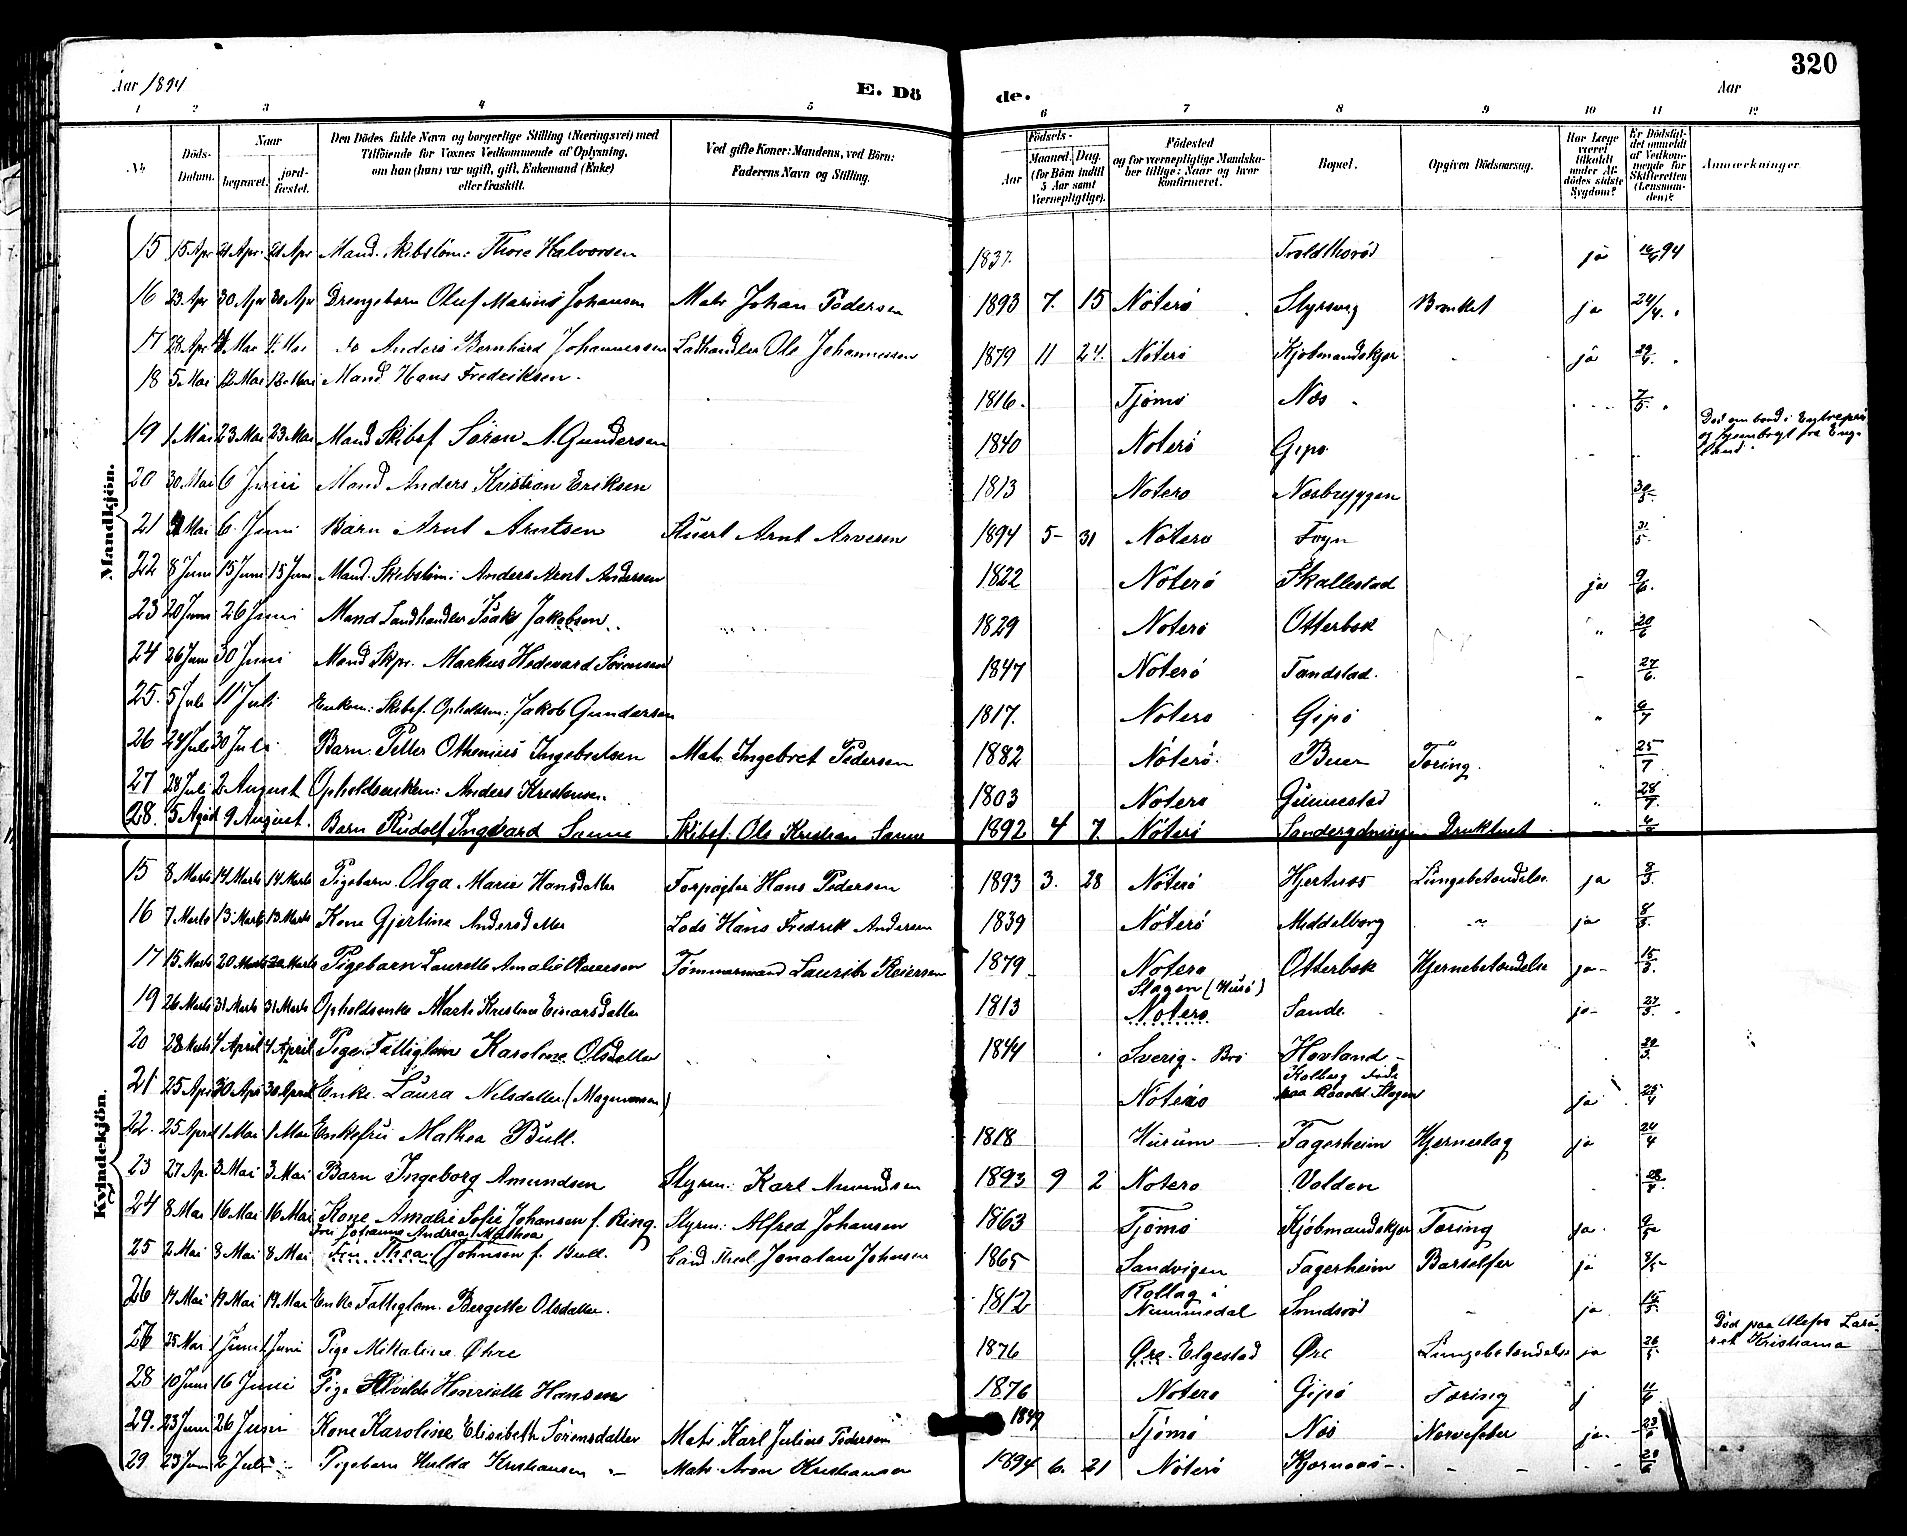 320
Aar 1894
E. Dö
de.
Aar
1 2 3 4 5 6 7 8 9 10 11 12
No
Döds-Datum.
Naar
begravet.
jord-fæstet.
Den Dödes fulde Navn og borgerlige Stilling (Næringsvei) med Tilföiende for Voxnes Vedkommende af Oplysning, om han (hun) var ugift, gift, Enkemand (Enke) eller fraskilt.
Ved gifte Koner: Mandens, ved Börn: Faderens Navn og Stilling.
Födsels-
Aar
Maaned. Dag.
(for Börn indtil 5 Aar samt Værnepligtige).
Födested
og for værnepligtige Mandskaber tillige: Naar og hvor konfirmeret.
Bopæl.
Opgiven Dödsaarsag.
Har Læge været tilkaldt under Afdödes sidste Sygdom?
Er Dödsfaldet anmeldt af Vedkommende for Skifteretten (Lensmanden)?
Anmærkninger
Mandkjön.
15 15 Apr 21 Apr 21 Apr Mand. Skibstöm: Thore Halvorsen 1837. Troldthorød ja 94
16 23 Apr 30 Apr 30 Apr Drengebarn Oluf Marius Johansen Matr Johan Pedersen 1893 7. 15 Nöterö Styrsvig Bronket ja 24/4
17 28 Apr Mai Mai do Anders Bernhard Johannessen Ladhandler Ole Johannessen 1879 11 24. Nöterö Kjöbmandskjær ja
18 5 Mai 12 Mai 12 Mai Mand Hans Fredriksen. 1816. Tjömö Næs 7/5
19 1 Mai 23 Mai 23 Mai Mand Skibsf Sören A. Gundersen 1840 Noterö Gipö Död om bord i
og hjembragt fra England
20 30 Mai 6 Juni Mand Anders Kristian Eriksen 1813 Notero Næsbryggen 30/5
21 Mai 6 Juni Barn Arnt Arntsen Stuert Arnt Arvesen 1894 5 31 Notero Föyn 31/5
22 8 Juni 15 Juni 15 Juni Mand. Skibstöm: Anders Arnt Andersen 1822 Nöterö Skallestad ja 9/6
23 20 Juni 26 Juni Mand Landhandler Isak Jakobsen 1829 Noterö Otterbæk " 20/6
24 26 Juni 30 Juni Mand Skpr. Markus Hedevard Sörensen 1847 Nöterö Tandstad. 27/6
25. 5 Juli 11 Juli Enkem: Skibsf. Opholdsm: Jakob Gundersen 1817. Notero Gipö " 9/7
26 24 Juli 30 Juli Barn Petter Othenius Ingebretsen Matr. Ingebret Pedersen 1882 Nöterö Buer Tæring. " 25/7
27 28 Juli 2 August Opholdsenkem: Anders Kristensen. 1803 Nötero Gunnestad " 28/7
28. 5 Agust 9 August. Barn Rudolf Ingvard Sanne Skibsf. Ole Kristian Sanne 1892 4 7. Nöterö Druknet
Kvindekjön.
15 8 Marts 14 Marts 14 Marts Pigebarn. Olga Marie Hansdatter Forpagter Hans Pedersen 1893 3. 28 Nöterö Hjertnæs Lungebetændelse ja 8/3.
16 7 Marts 13 Marts 13 Marts Kone Gjertine Andersdatter Lods Hans Fredrik Andersen 1839 Nöterö Middelborg " ja 8/3.
17 15 Marts 20 Marts 20 Marts Pigebarn Laurette Amalie Reiersen Tömmermand Laurits Reiersen 1879 Notero Otterbæk Hjernebetændelse ja 15/3.
19 26 Marts 31 Marts 31 Marts Opholdsenke Marte Kristine Einarsdatter 1813 Slagen (Husö)
Notero Sande ja 27/3.
20 28 Marts 4 April 4 April Pige. Fattiglem Karoline Olsdatter 1844 Sverig - Bro Hovland
21 25 Apr 30 Apr 30 April Enke. Laura Nilsdatter (Magnussen) Nöterö Kolberg døde
paa Slagen ja 25/4
22. 25 April 1 Mai 1 Mai Enkefru Mathea Bull. 1818 Hurum Fagerheim Hjerneslag ja 24/4
23 27 Ap. 3 Mai 3 Mai Barn Ingeborg Amundsen Styrm: Karl Amundsen 1893 9 2 Notero Volden 28/4.
24 8 Mai 16 Mai 16 Mai Kone Amalie Sofie Johansen f. Ring. Styrm: Alfred Johansen 1863 Tjömö Kjöbmandskjær Tæring ja. 9/5
25 2 Mai 8 Mai 8 Mai Fru Johanne Andrea Mathea
Fru Thea Johnsen f. Bull. Cand Theol Jonatan Johnsen 1865 Sandvigen Fagerheim Barselfer ja 3/5
26 14 Mai 19 Mai 19 Mai Enke Fattiglem. Bergette Olsdatter. 1812 Rollag i
Nummedal Smidsröd ja 15/5
27 25 Mai 1 Juni 1 Juni Pige Mikaline Öhre 1876 Øre - Elgestad Øre Lungebetændelse ja 26/5 Död paa Ulefos
Kristiania
28 10 Juni 16 Juni Pige Alvilde Henriette Hansen 1876 Notero Gipö Tæring j 11/6
29. 23 Juni 26 Juni Kone Karoline Elisabeth Sörensdatter Matr. Karl Julius Pedersen 1849 Tjömö Næs Nervefeber ja 23/6
29 23 Juni 2 Juli Pigebarn Hulda Kristiansen Matr Aron Kristiansen 1894 6. 21 Nöterö Kjærnaas